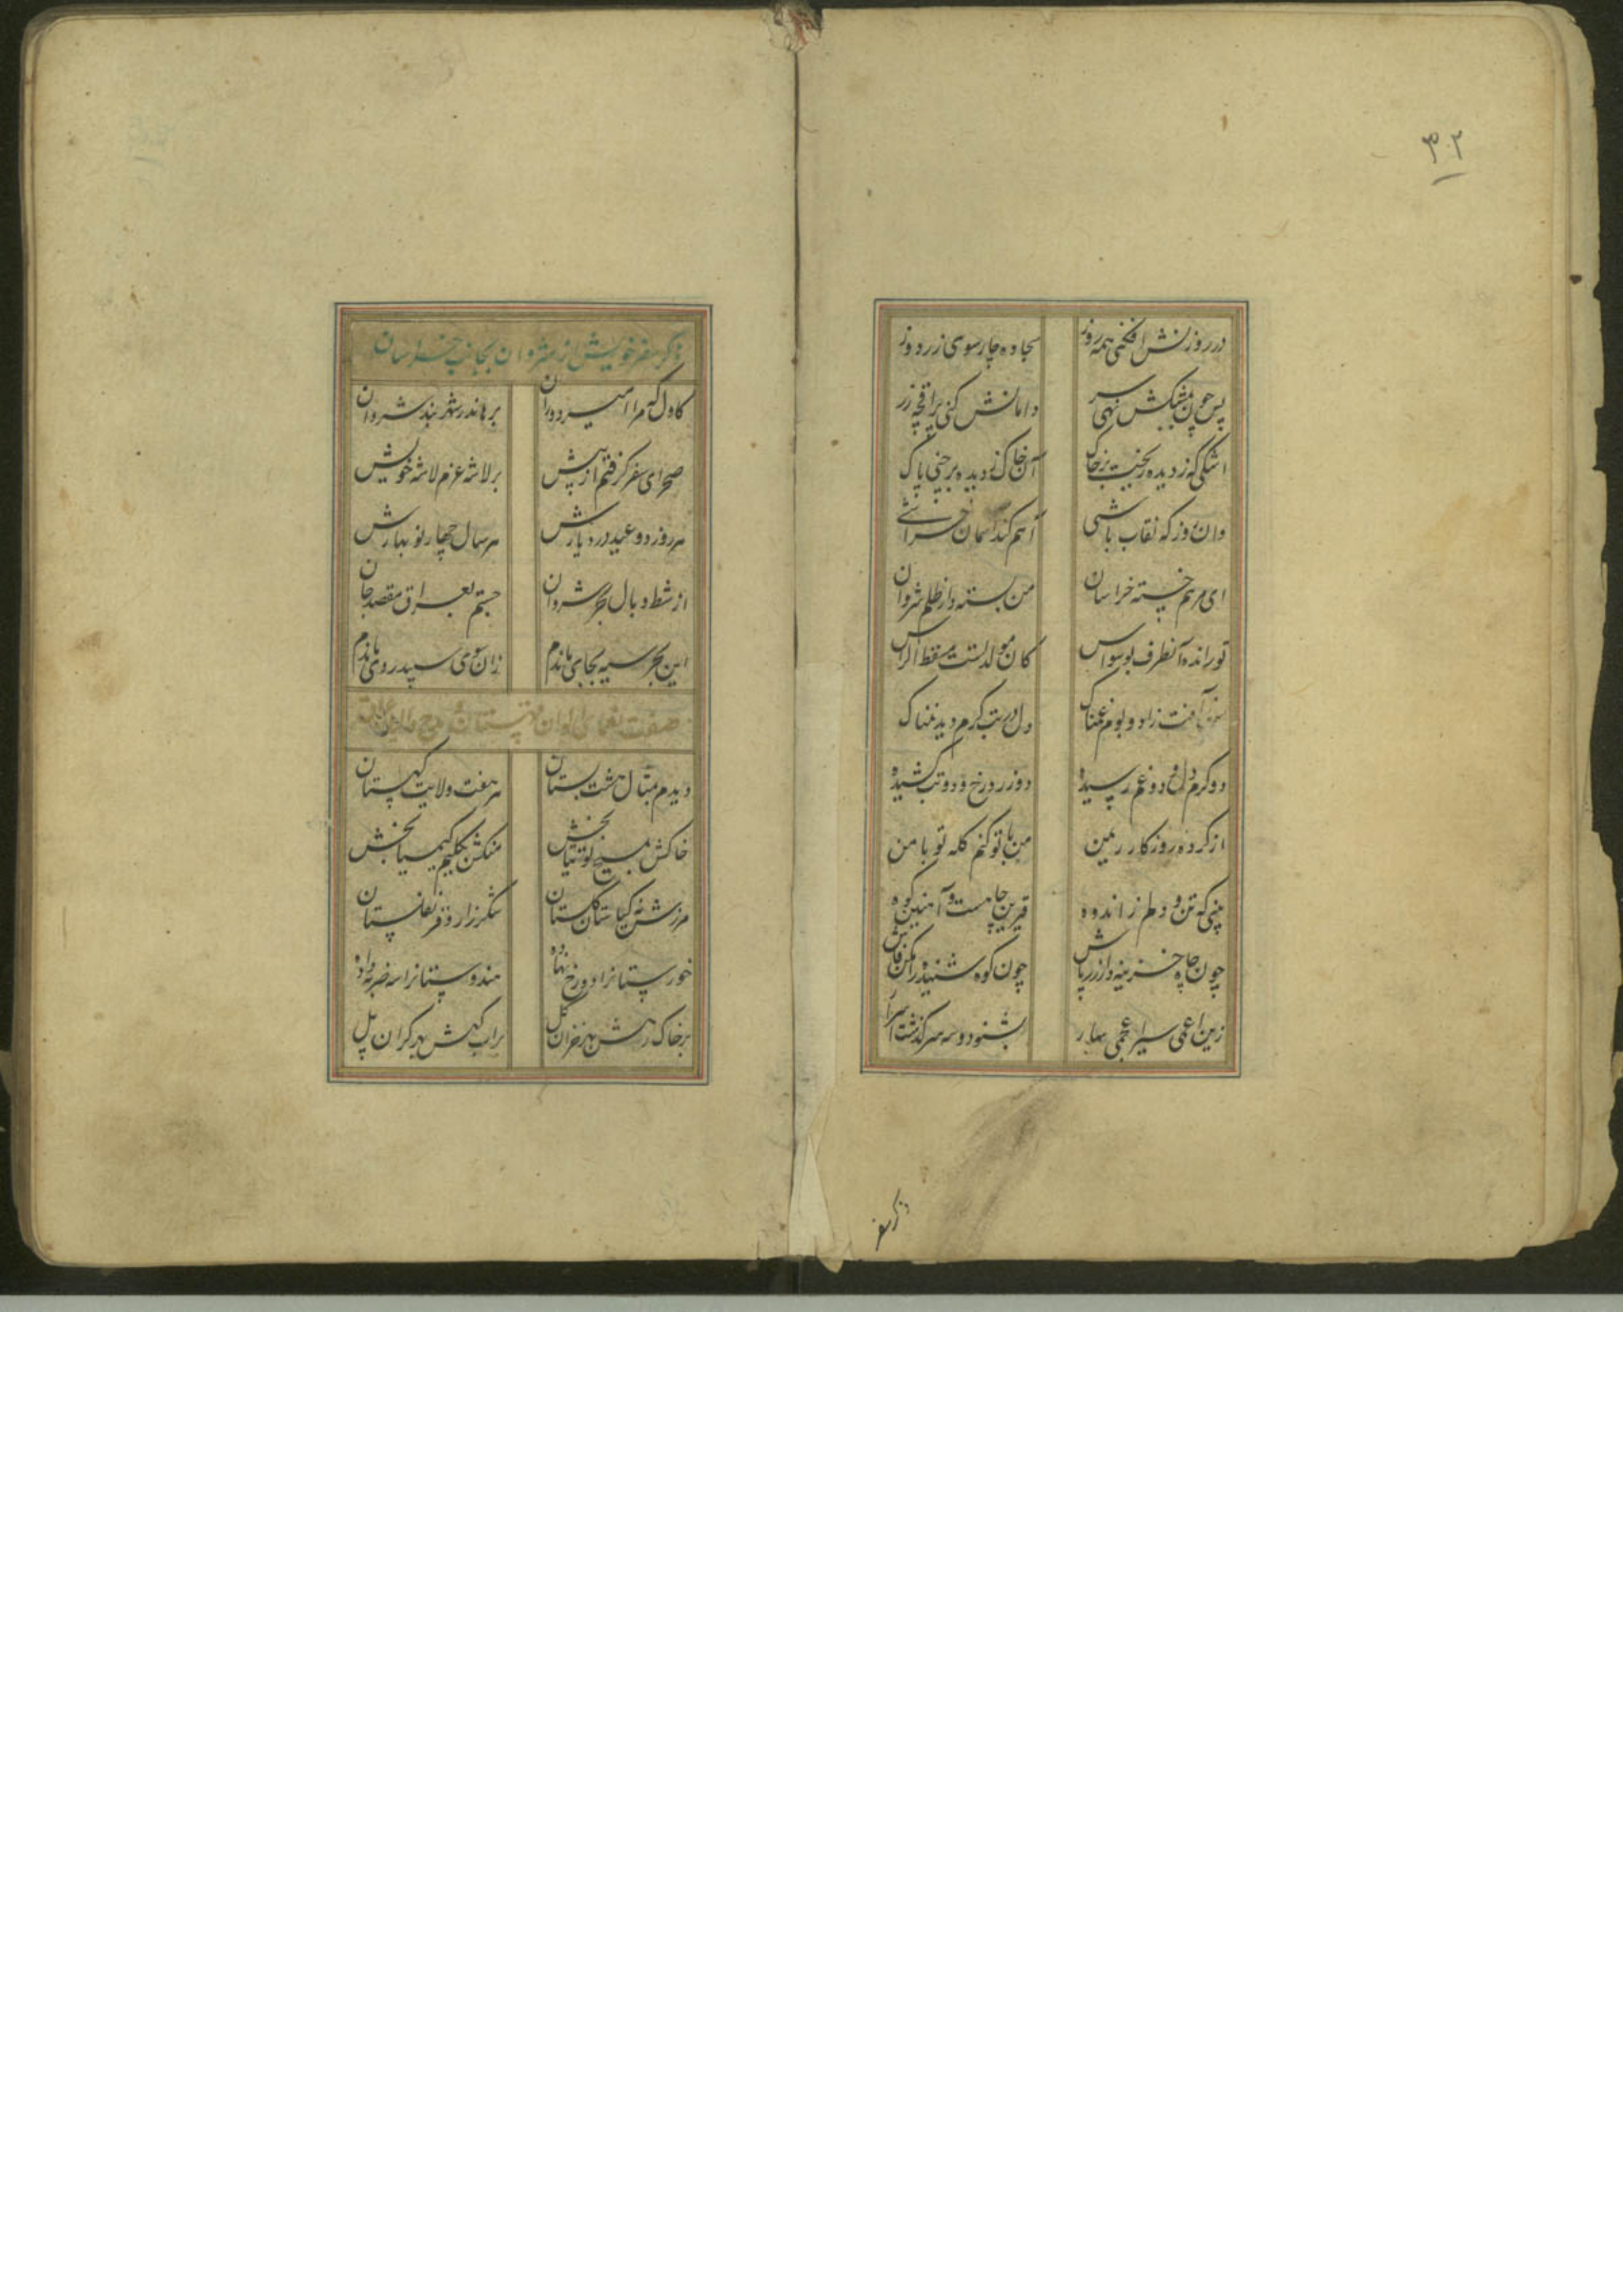 ۳۲
در روزنش افکنی همه روز سجاده چارسوی زردوز
پس چون بمشبکش نهی سر دامانش کنی پراقچه زر
اشکی که ز دیده ریخت بر خاک آن خاک ز دیده برچنی پاک
وان روز که نقاب باشی آسمان
ای مرهم خسته خراسان من بسته دار ظلم شروان
تو رانده آنطرف بوسواس کان مولد تست مسقط الراس
زاد و بوم غمناک دل در تب گرم دید نمناک
دو کرم دو غم رسیده دو زرد رخ و دو تب کشیده
از کرده روزکار ریمن من با تو کنم کله تو با من
بینی که تن و دلم ز اندوه قیرین چاهست و آهنین کوه
چون چاه خزینه دار زر باش چون کوه شنیده را مکن فاش
زین اعمی سیر اعجمی بشنو دو سه سرگذشت
ذکر سفر
ذکر سفر خویش از شروان بجانب خراسان
کاول که مرا اسیر دوران برهاند ز شهر بند شروان
صحرای سفر گرفتم از پیش بر لاشه عزم لاشه خویش
هر روز دو عید در دیارش هر سال چهار نو بهارش
از شط وبال بحر شروان جستم بعراق مقصد جان
این بحر سیه بجای ماندم زان سوی سپید روی راندم
صفت قهستان
دیدم بمثال هشت بستان هر هفت ولایت کهستان
خاکش بمسیح توتیا بخش سنگش بکلیم کیمیا بخش
مرزش ز کیا ستان گلستان شکرزار و قرنفلستان
خورستانرا دو رخ نهاده هندوستانرا سه ضربه داده
بر خاک رهش بهر خزان گل بر آب کهش بهر کران پل